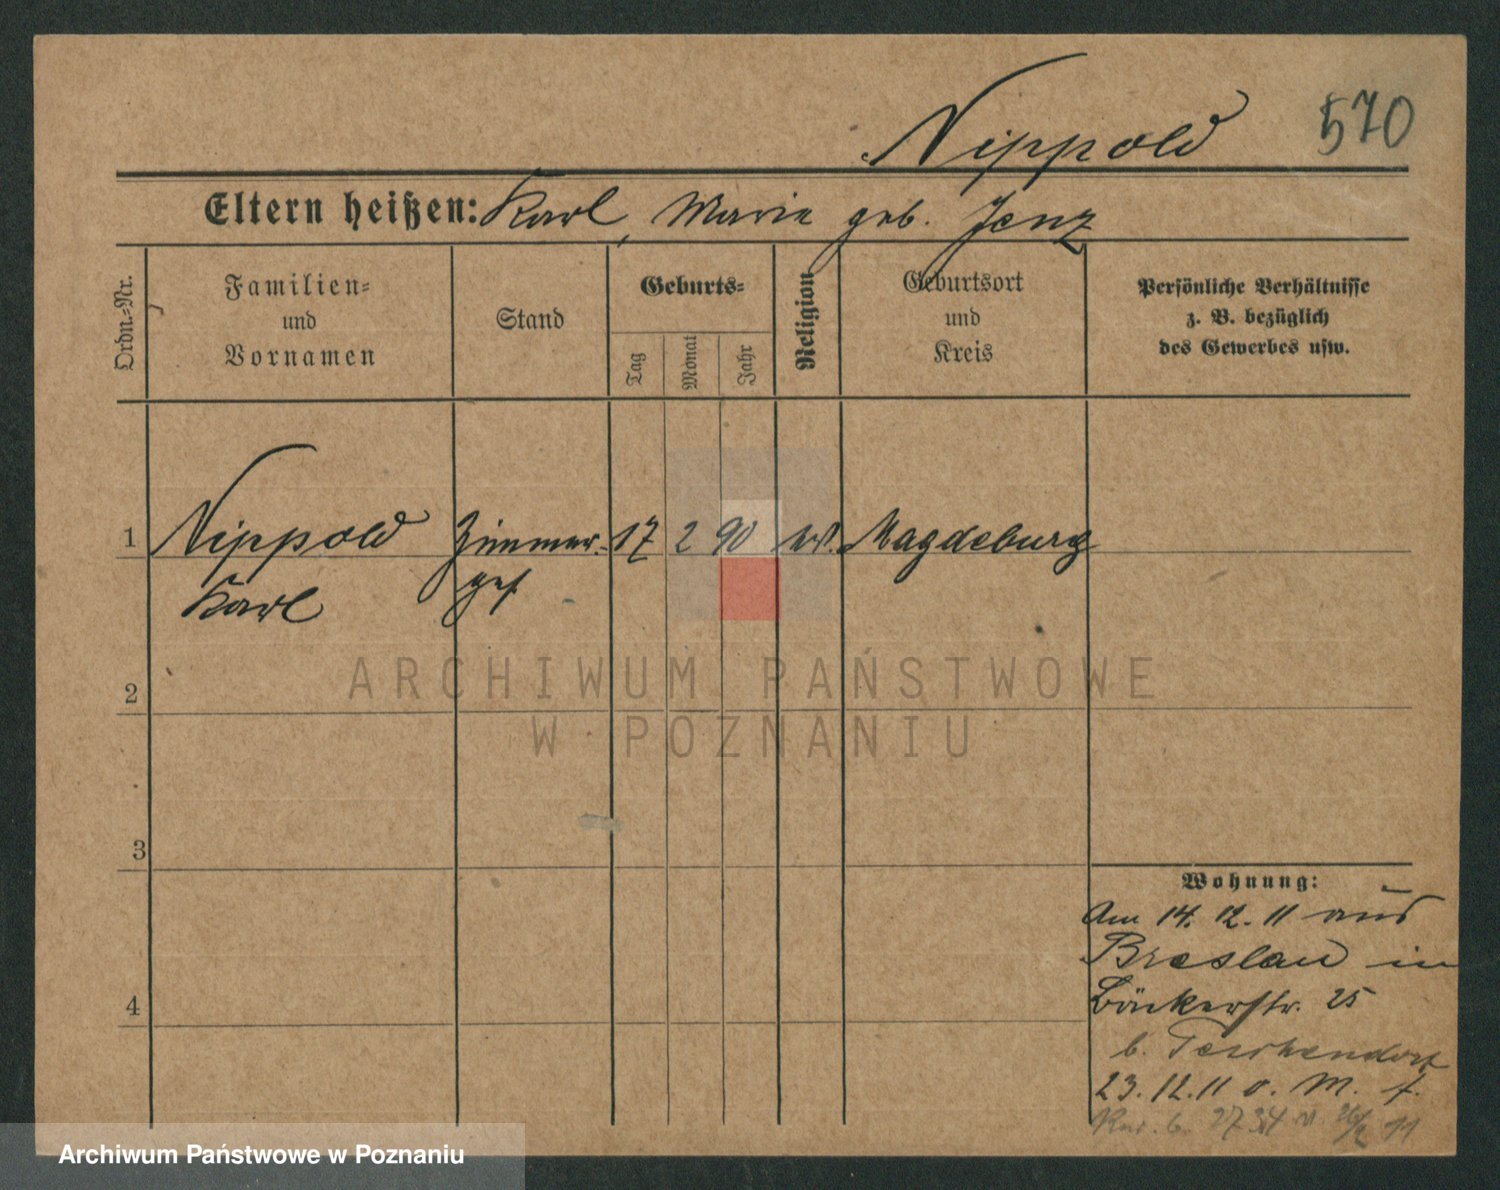 Nippold
570
Eltern heißen: Karl, Marie geb. Jenz
Ordn.-Nr.
Familien-
und
Vornamen
Stand
Geburts-
Tag
Monat
Jahr
Religion
Geburtsort
und
Kreis
Persönliche Verhältnisse
z. B. bezüglich
des Gewerbes usw.
1
Nippold
Karl
Zimmer-
ges.
17
2
90
Magdeburg
2
3
4
Wohnung:
Am 14. 12. 11 aus
Breslau in
Bäckerstr. 25
b. Teschendorf
23. 12. 11 o. M. f.
ARCHIWUM PAŃSTWOWE
W POZNANIU
Archiwum Państwowe w Poznaniu